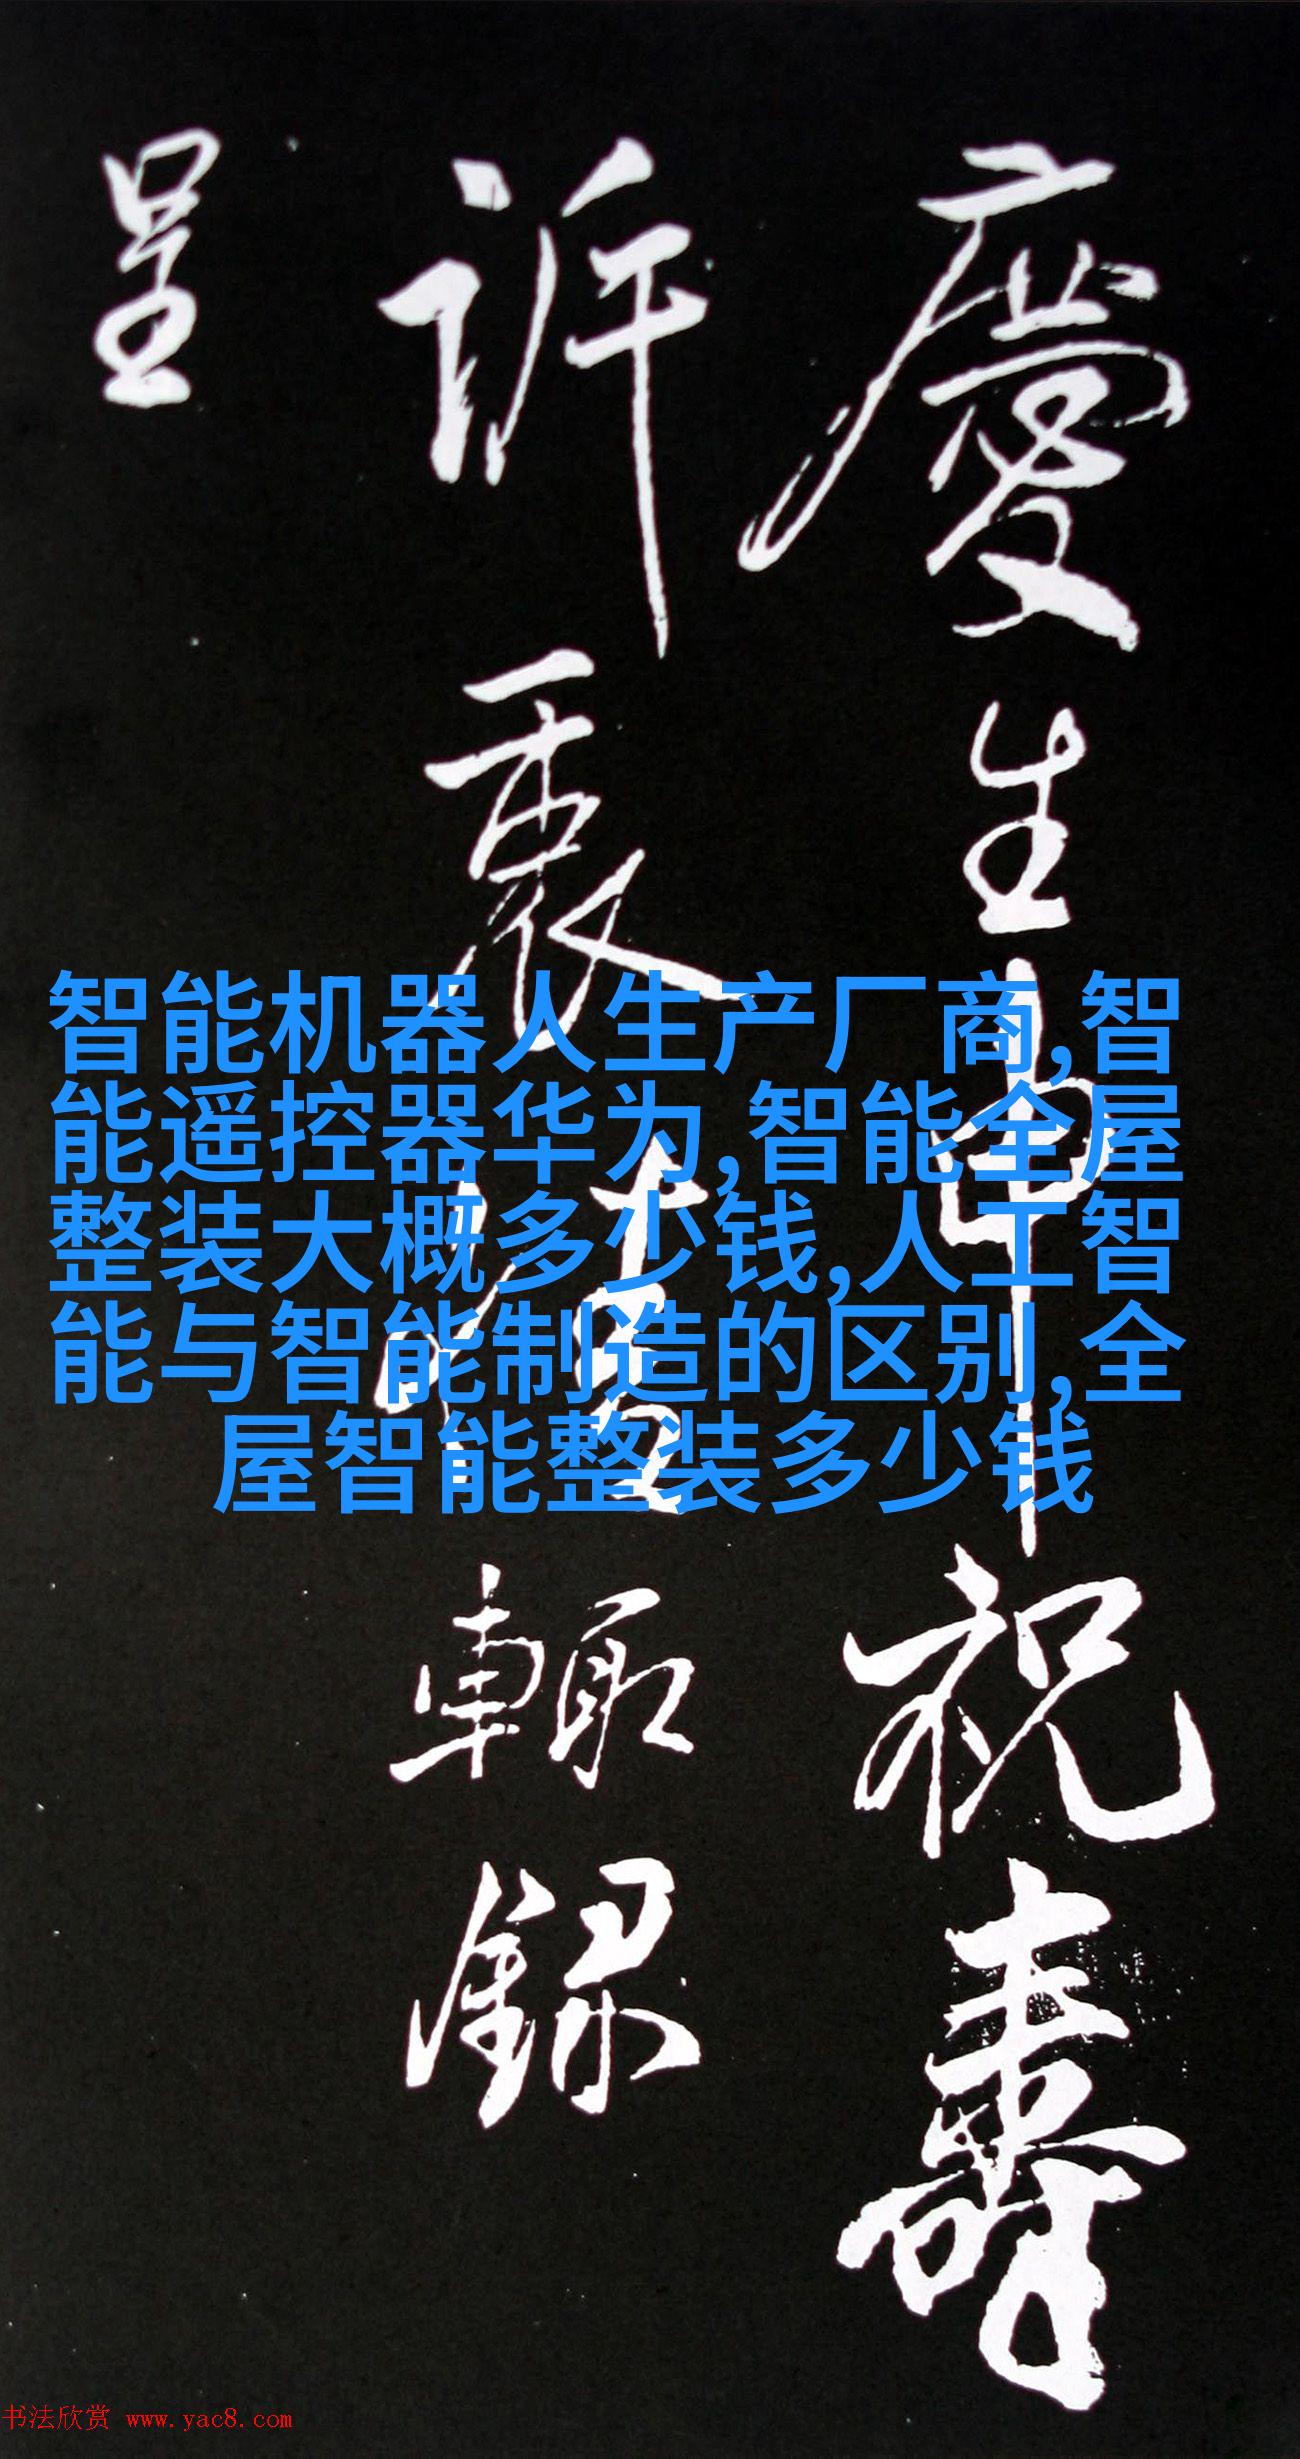 慶生申祝壽
訢衷情輒録
呈
智能机器人生产厂商,智
能遥控器华为,智能全屋
整装大概多少钱,人工智
能与智能制造的区别,全
屋智能整装多少钱
书法欣赏 www.yac8.com